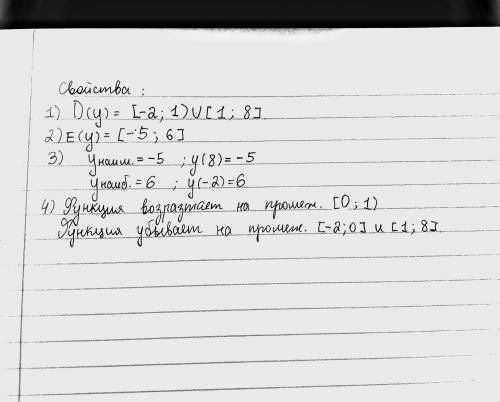 Свойства :
1) D(y) = [-2; 1) U [1; 8]
2) E(y) = [-5; 6]
3) yнаим. = -5 ; y(8) = -5
yнаиб. = 6 ; y(-2) = 6
4) Функция возразтает на промеж. [0; 1)
Функция убывает на промеж. [-2; 0] и [1; 8]